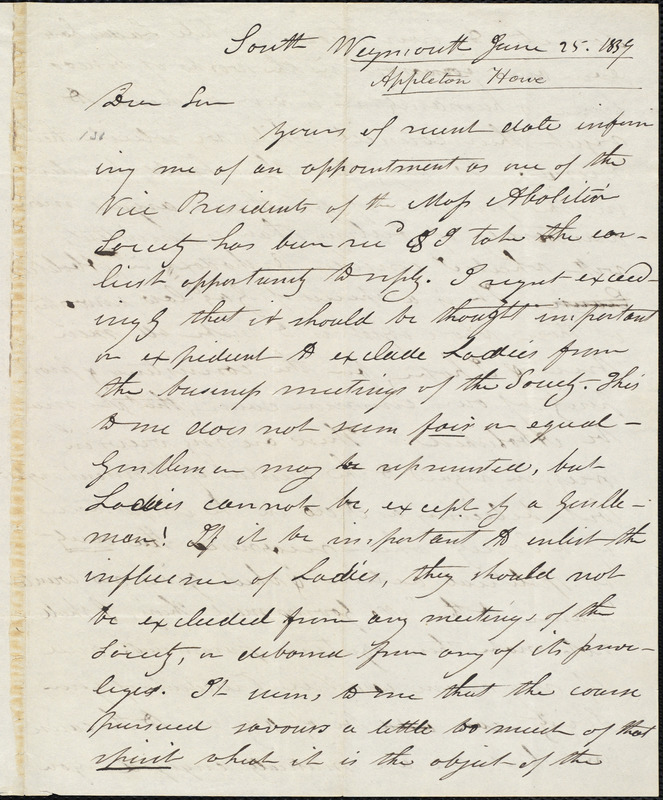 South Weymouth June 25. 1839
Appleton Howe
Dear Sir
Yours of recent date inform
ing me of an appointment as one of the
Vice Presidents of the Mass Abolition
Society has been rec^d & I take the ear-
liest opportunity to reply. I regret exceed-
ingly that it should be thought important
or expedient to exclude Ladies from
the business meetings of the Society. This
to me does not seem fair or equal-
Gentlemen may be represented, but
Ladies cannot be, except by a Gentle-
man! If it be important to enlist the
influence of Ladies, they should not
be excluded from any meetings of the
Society, or debarred from any of its privi-
leges. It seems to me that the course
pursued savours a little too much of that
spirit which it is the object of the